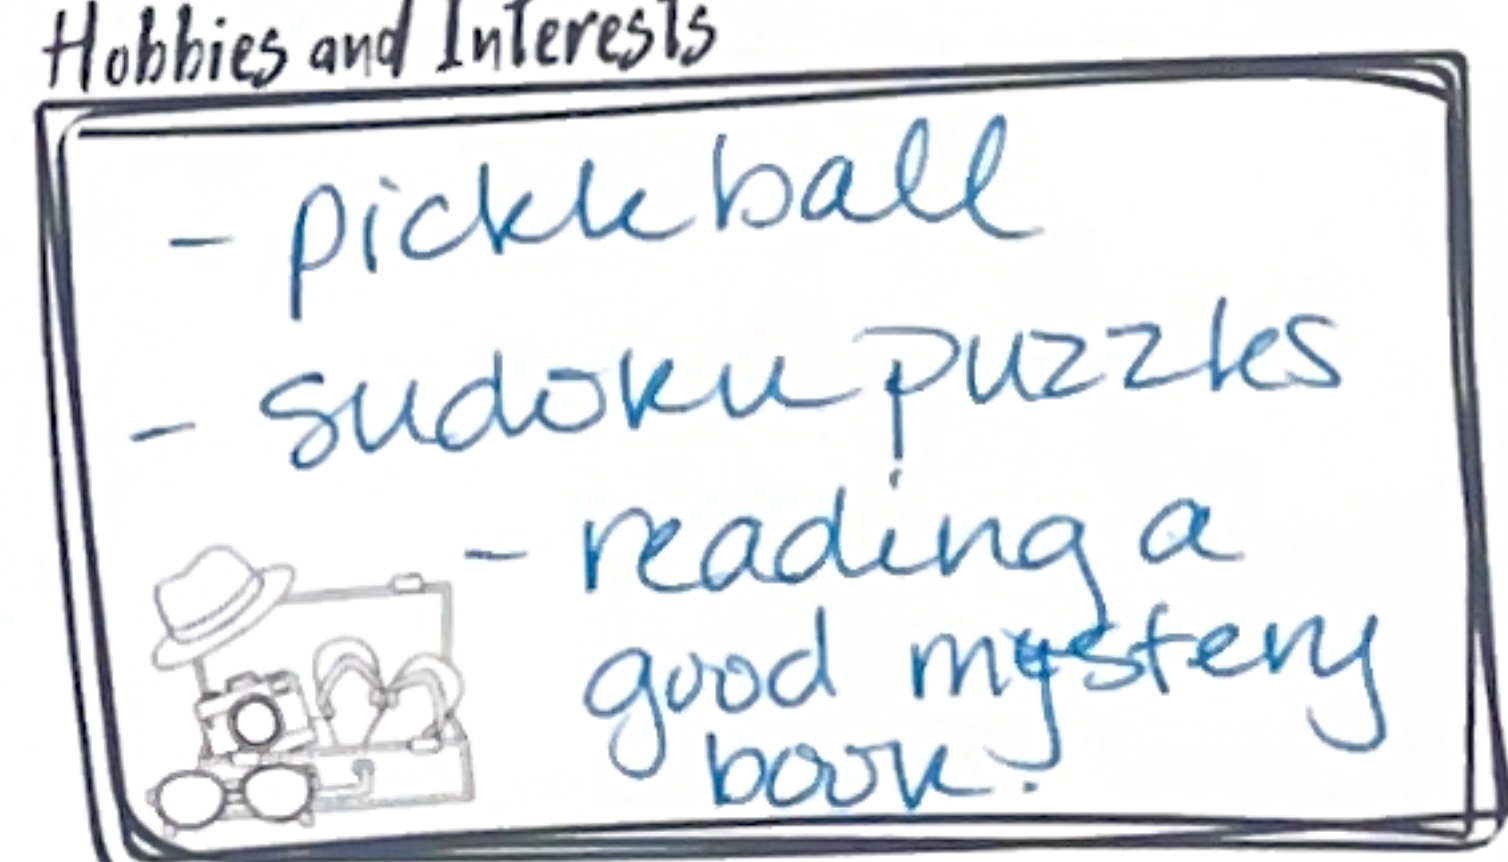 Hobbies and Interests
- pickleball
- sudoku puzzles
- reading a
good mystery
book.